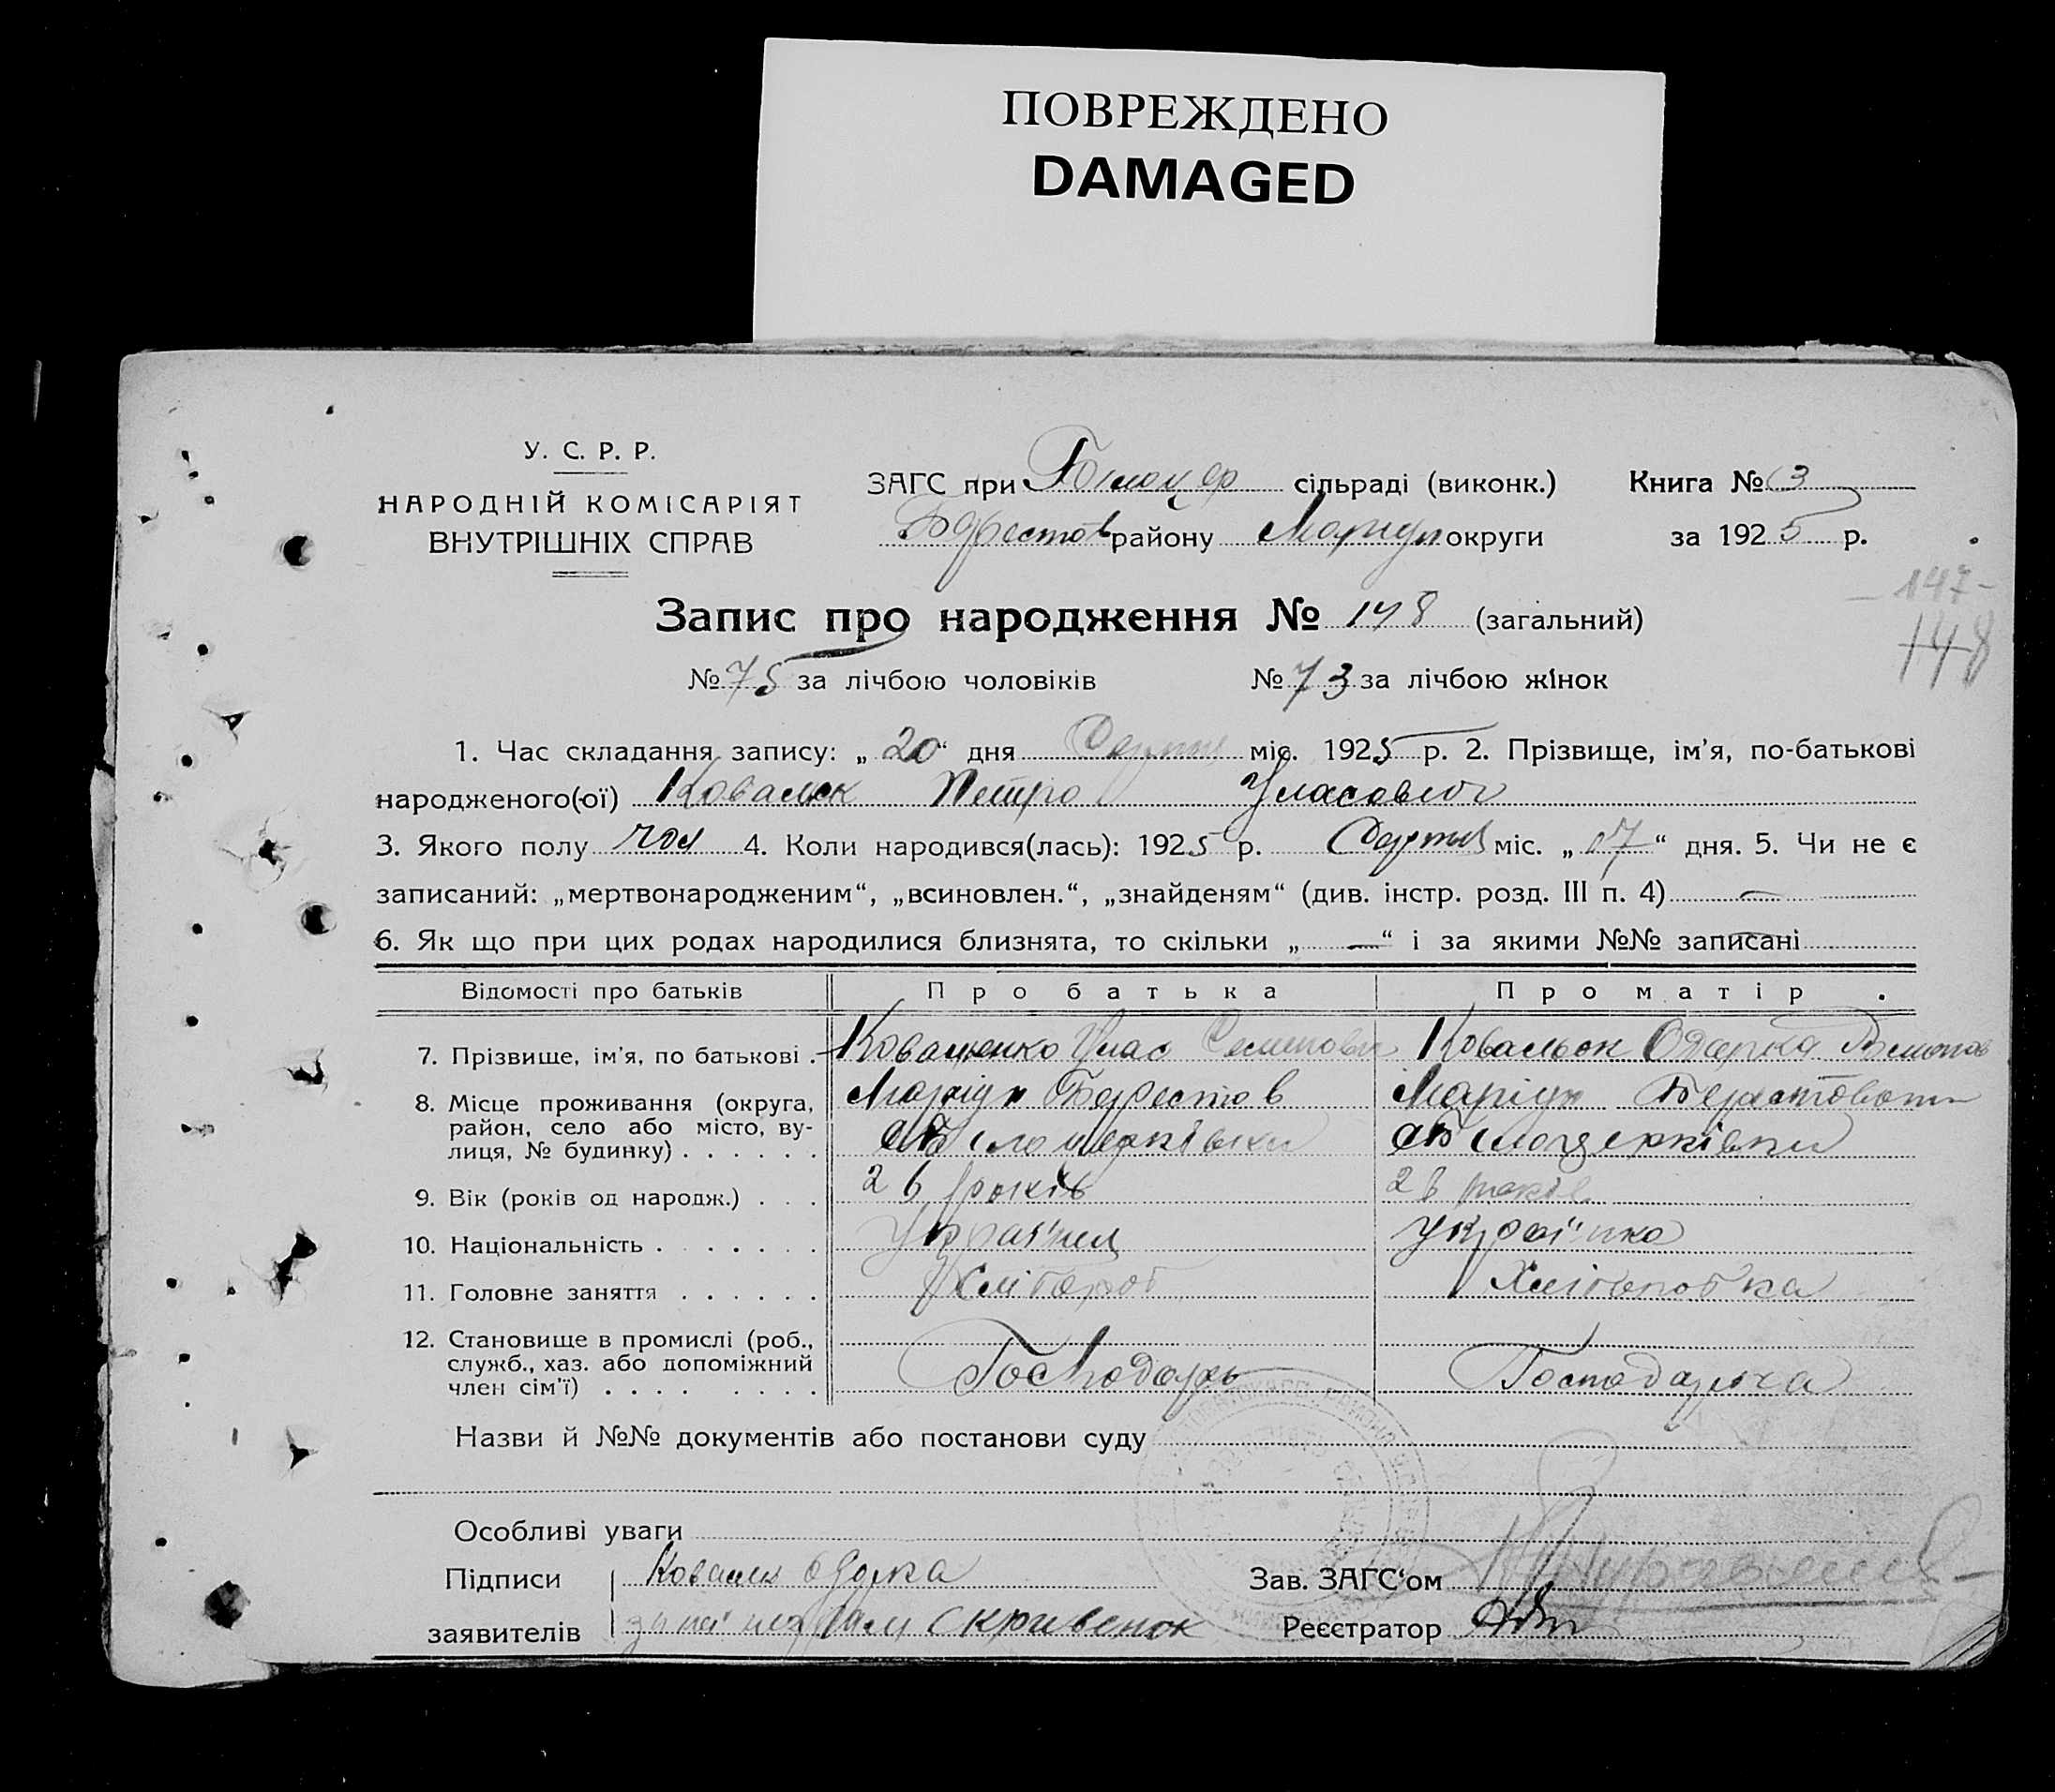 ПОВРЕЖДЕНО
DAMAGED
У. С. Р. Р.
НАРОДНІЙ КОМІСАРІЯТ
ВНУТРІШНІХ СПРАВ
ЗАГС при Білоцер сільраді (виконк.) Книга № 3
Берестов району Маріуп округи за 1925 р.
147
148
Запис про народження № 148 (загальний)
№ 75 за лічбою чоловіків № 73 за лічбою жінок
1. Час складання запису: „20“ дня міс. 1925 р. 2. Прізвище, ім'я, по-батькові
народженого(ої) Петро Уласович
3. Якого полу чол 4. Коли народився(лась): 1925 р. міс. „07“ дня. 5. Чи не є
записаний: „мертвонародженим“, „всиновлен.“, „знайденям“ (див. інстр. розд. III п. 4) —
6. Як що при цих родах народилися близнята, то скільки „—“ і за якими №№ записані —
Відомості про батьків Про батька Про матір
7. Прізвище, ім'я, по батькові . Улас Одарка
8. Місце проживання (округа, Маріуп Берестов Маріуп
район, село або місто, ву-
лиця, № будинку) . . . . . . с Білоцерківки с Білоцерківки
9. Вік (років од народж.) . . . 26 років 26 років
10. Національність . . . . . . . Українец Українка
11. Головне заняття . . . . . . Хлібороб Хліборобка
12. Становище в промислі (роб.,
служб., хаз. або допоміжний
член сім'ї) . . . . . . . . Господарь
Назви й №№ документів або постанови суду
Особливі уваги
Підписи Зав. ЗАГС'ом
заявителів Скривенок Реєстратор